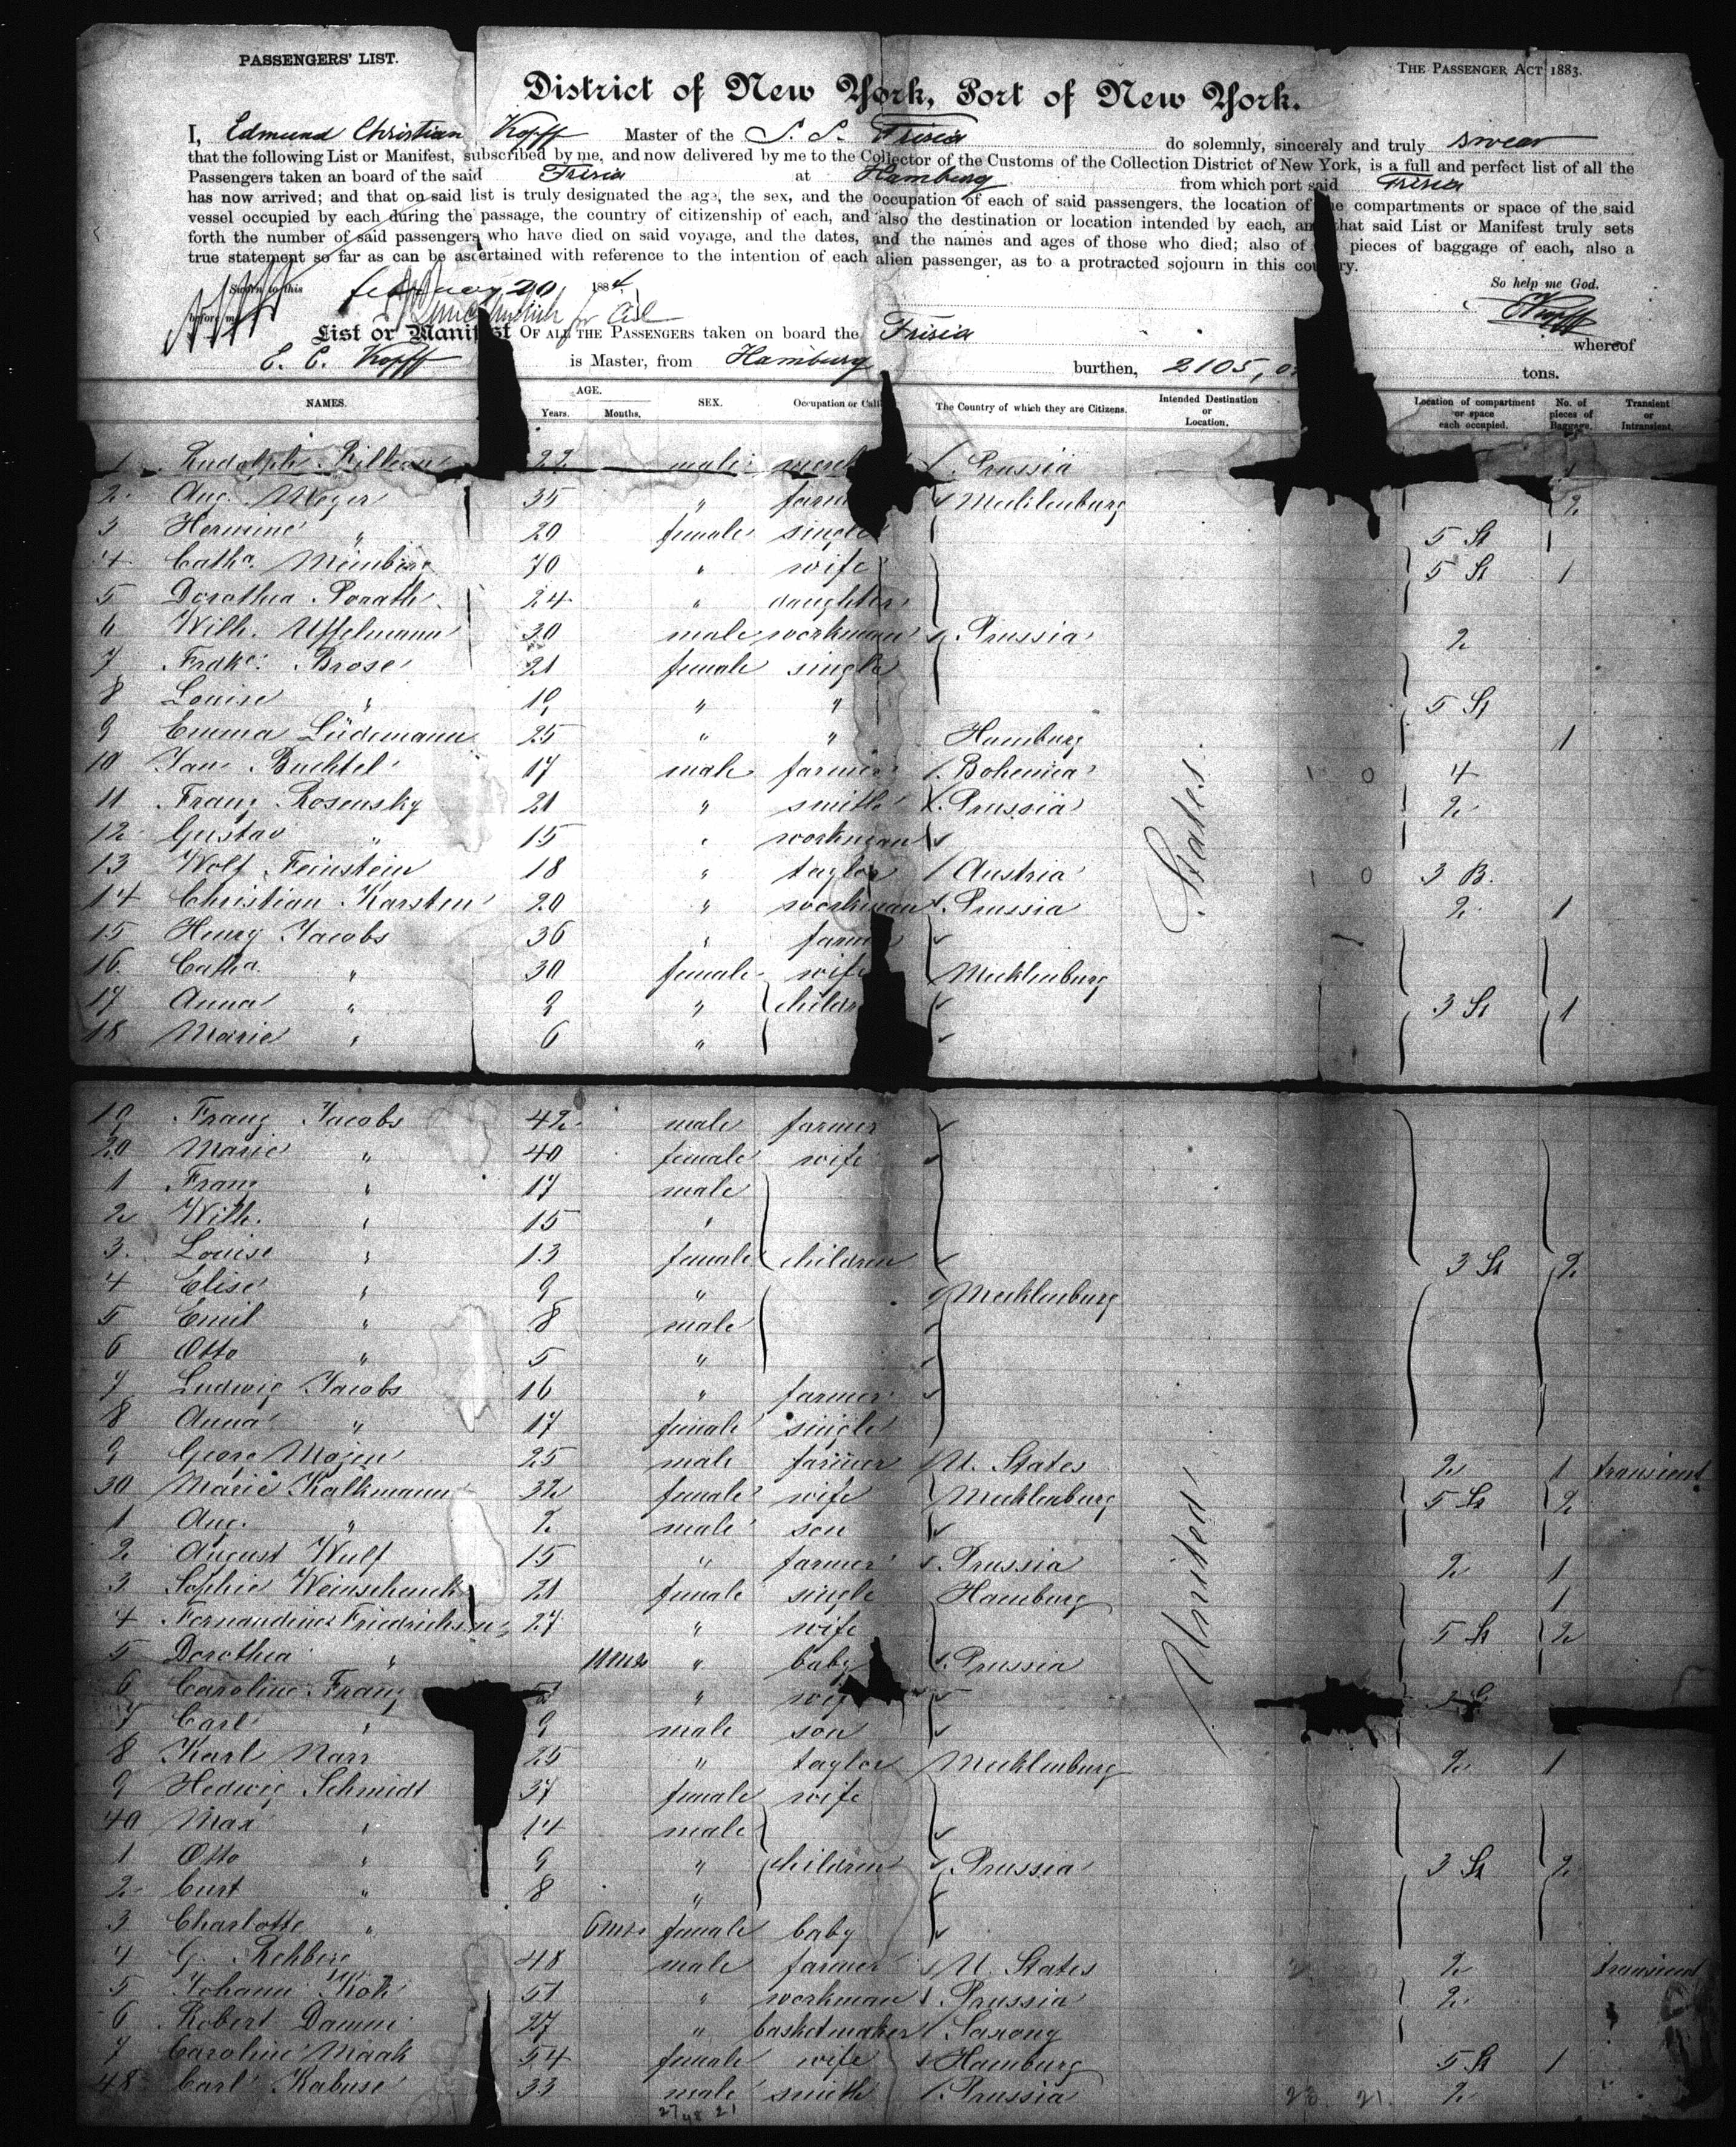 PASSENGERS' LIST.
THE PASSENGER ACT 1883.
District of New York, Port of New York.
I, Edmund Christian Kopff Master of the S. S. Frisia do solemnly, sincerely and truly swear
that the following List or Manifest, subscribed by me, and now delivered by me to the Collector of the Customs of the Collection District of New York, is a full and perfect list of all the
Passengers taken an board of the said Frisia at Hamburg from which port said Frisia
has now arrived; and that on said list is truly designated the age, the sex, and the occupation of each of said passengers, the location of the compartments or space of the said
vessel occupied by each during the passage, the country of citizenship of each, and also the destination or location intended by each, and that said List or Manifest truly sets
forth the number of said passengers who have died on said voyage, and the dates, and the names and ages of those who died; also of pieces of baggage of each, also a
true statement so far as can be ascertained with reference to the intention of each alien passenger, as to a protracted sojourn in this country.
Sworn to this february 20 1884 So help me God.
before me EKopff
List or Manifest OF ALL THE PASSENGERS taken on board the Frisia whereof
E. C. Kopff is Master, from Hamburg burthen, 2105, tons.
NAMES. AGE. Years. Months. SEX. Occupation or The Country of which they are Citizens. Intended Destination or Location. Location of compartment or space each occupied. No. of pieces of Baggage. Transient or Intransient.
1 Rudolph 22 male Prussia
2 Aug. Meyer 35 " Mecklenburg 2
3 Hermine " 20 female single 5 St 1
4 Catha. 70 " wife 5 St 1
5 Dorothea Porath 24 " daughter
6 Wilh. Uffelmann 30 male workman Prussia 2
7 Frdke. Brose 21 female single
8 Louise " 19 " " 5 St
9 Emma Lüdemann 25 " " Hamburg 1
10 Jan Buchtel 17 male farmer Bohemia 1 0 4
11 Franz Rosensky 21 " smith Prussia 2
12 Gustav " 15 " workman
13 Wolf Feinstein 18 " taylor Austria 1 0 3 B.
14 Christian Karsten 20 " workman Prussia 2 1
15 Henry Jacobs 36 " farmer
16 Catha. " 30 female wife Mecklenburg
17 Anna " 9 " children 3 St 1
18 Marie " 6 "
19 Franz Jacobs 42 male farmer
20 Marie " 40 female wife
1 Franz " 17 male
2 Wilh. " 15 "
3 Louise " 13 female children 3 St 2
4 Elise " 9 " Mecklenburg
5 Emil " 8 male
6 Otto " 5 "
7 Ludwig Jacobs 16 " farmer
8 Anna " 17 female single
9 Georg Mojen 25 male farmer U. States 2 1 transient
30 Marie Kalkmann 32 female wife Mecklenburg 5 St 2
1 Aug. " 2 male son
2 August Wulf 15 " farmer Prussia 2 1
3 Sophie Weinschenck 21 female single Hamburg 1
4 Fernandine Friedrichsen 27 " wife 5 St 2
5 Dorothea " 11 mos " baby Prussia
6 Caroline Franz " wife
7 Carl " 9 male son
8 Karl Narr 25 " taylor Mecklenburg 2 1
9 Hedwig Schmidt 37 female wife
40 Max " 14 male
1 Otto " 9 " children Prussia 3 St 2
2 Curt " 8 "
3 Charlotte " 6 mos female baby
4 G. Rehberg 48 male farmer U. States 2 transient
5 Johann 51 " workman Prussia 2
6 Robert Damm 27 " basketmaker Saxony
7 Caroline Maak 54 female wife Hamburg 5 St 1
48 Carl Kabuse 33 male smith Prussia 23 21 2
27 48 21
United States